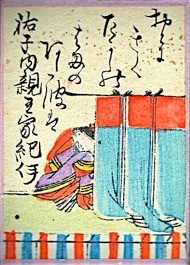 音に
きく
たかしの
はまの
あた波は
祐子内親王家紀伊